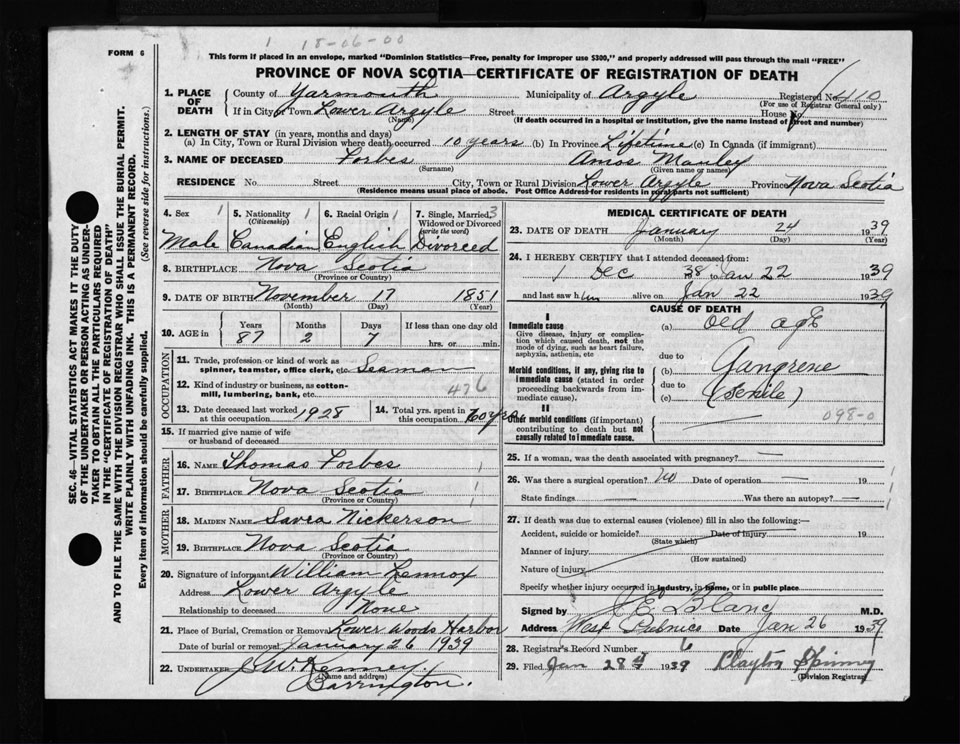 1 18-06-00
FORM 6
This form if placed in an envelope, marked "Dominion Statistics—Free, penalty for improper use $300," and properly addressed will pass through the mail "FREE"
PROVINCE OF NOVA SCOTIA—CERTIFICATE OF REGISTRATION OF DEATH
1. PLACE OF DEATH County of Yarmouth Municipality of Argyle Registered No. 410
(For use of Registrar General only)
If in City or Town Lower Argyle Street House No.
(Name) (If death occurred in a hospital or institution, give the name instead of street and number)
2. LENGTH OF STAY (in years, months and days)
(a) In City, Town or Rural Division where death occurred 10 years (b) In Province Lifetime (c) In Canada (if immigrant)
3. NAME OF DECEASED Forbes Amos Manley
(Surname) (Given name or names)
RESIDENCE No. Street City, Town or Rural Division Lower Argyle Province Nova Scotia
(Residence means usual place of abode. Post Office Address for residents in rural parts not sufficient)
4. Sex 1 5. Nationality 1 (Citizenship) 6. Racial Origin 1 7. Single, Married, 3 Widowed or Divorced (write the word)
Male Canadian English Divorced
8. BIRTHPLACE Nova Scotia
(Province or Country)
9. DATE OF BIRTH November 17 1851
(Month) (Day) (Year)
10. AGE in Years Months Days If less than one day old
87 2 7 hrs. or min.
OCCUPATION
11. Trade, profession or kind of work as spinner, teamster, office clerk, etc. Seaman
12. Kind of industry or business, as cotton-mill, lumbering, bank, etc. 476
13. Date deceased last worked at this occupation 1928 14. Total yrs. spent in this occupation 60 yrs
15. If married give name of wife or husband of deceased
FATHER
16. NAME Thomas Forbes
17. BIRTHPLACE Nova Scotia
(Province or Country)
MOTHER
18. MAIDEN NAME Savea Nickerson
19. BIRTHPLACE Nova Scotia
(Province or Country)
20. Signature of informant William Lennox
Address Lower Argyle
Relationship to deceased None
21. Place of Burial, Cremation or Removal Lower Woods Harbor
Date of burial or removal January 26 1939
22. UNDERTAKER J. W. Kenney.
(Name and address)
Barrington.
MEDICAL CERTIFICATE OF DEATH
23. DATE OF DEATH January 24 1939
(Month) (Day) (Year)
24. I HEREBY CERTIFY that I attended deceased from:
1 Dec 38 to Jan 22 1939
and last saw him alive on Jan 22 1939
CAUSE OF DEATH
I
Immediate cause (a) old age
Give disease, injury or complication which caused death, not the mode of dying, such as heart failure, asphyxia, asthenia, etc
due to
Morbid conditions, if any, giving rise to immediate cause (stated in order proceeding backwards from immediate cause).
(b) Gangrene
due to
(c) (senile)
II
Other morbid conditions (if important) contributing to death but not causally related to immediate cause.
098-0
25. If a woman, was the death associated with pregnancy? —
26. Was there a surgical operation? No Date of operation — 19
State findings — Was there an autopsy? —
27. If death was due to external causes (violence) fill in also the following:—
Accident, suicide or homicide? Date of injury 19
(State which)
Manner of injury
(How sustained)
Nature of injury
Specify whether injury occurred in industry, in home, or in public place
Signed by J E Blanc M.D.
Address West Pubnico Date Jan 26 1939
28. Registrar's Record Number 6
29. Filed Jan 28 1939 Clayton Spinney
(Division Registrar)
SEC. 46—VITAL STATISTICS ACT MAKES IT THE DUTY
OF THE UNDERTAKER OR PERSON ACTING AS UNDER-
TAKER TO OBTAIN ALL THE PARTICULARS REQUIRED
IN THE "CERTIFICATE OF REGISTRATION OF DEATH"
AND TO FILE THE SAME WITH THE DIVISION REGISTRAR WHO SHALL ISSUE THE BURIAL PERMIT.
WRITE PLAINLY WITH UNFADING INK. THIS IS A PERMANENT RECORD.
Every item of information should be carefully supplied. (See reverse side for instructions.)